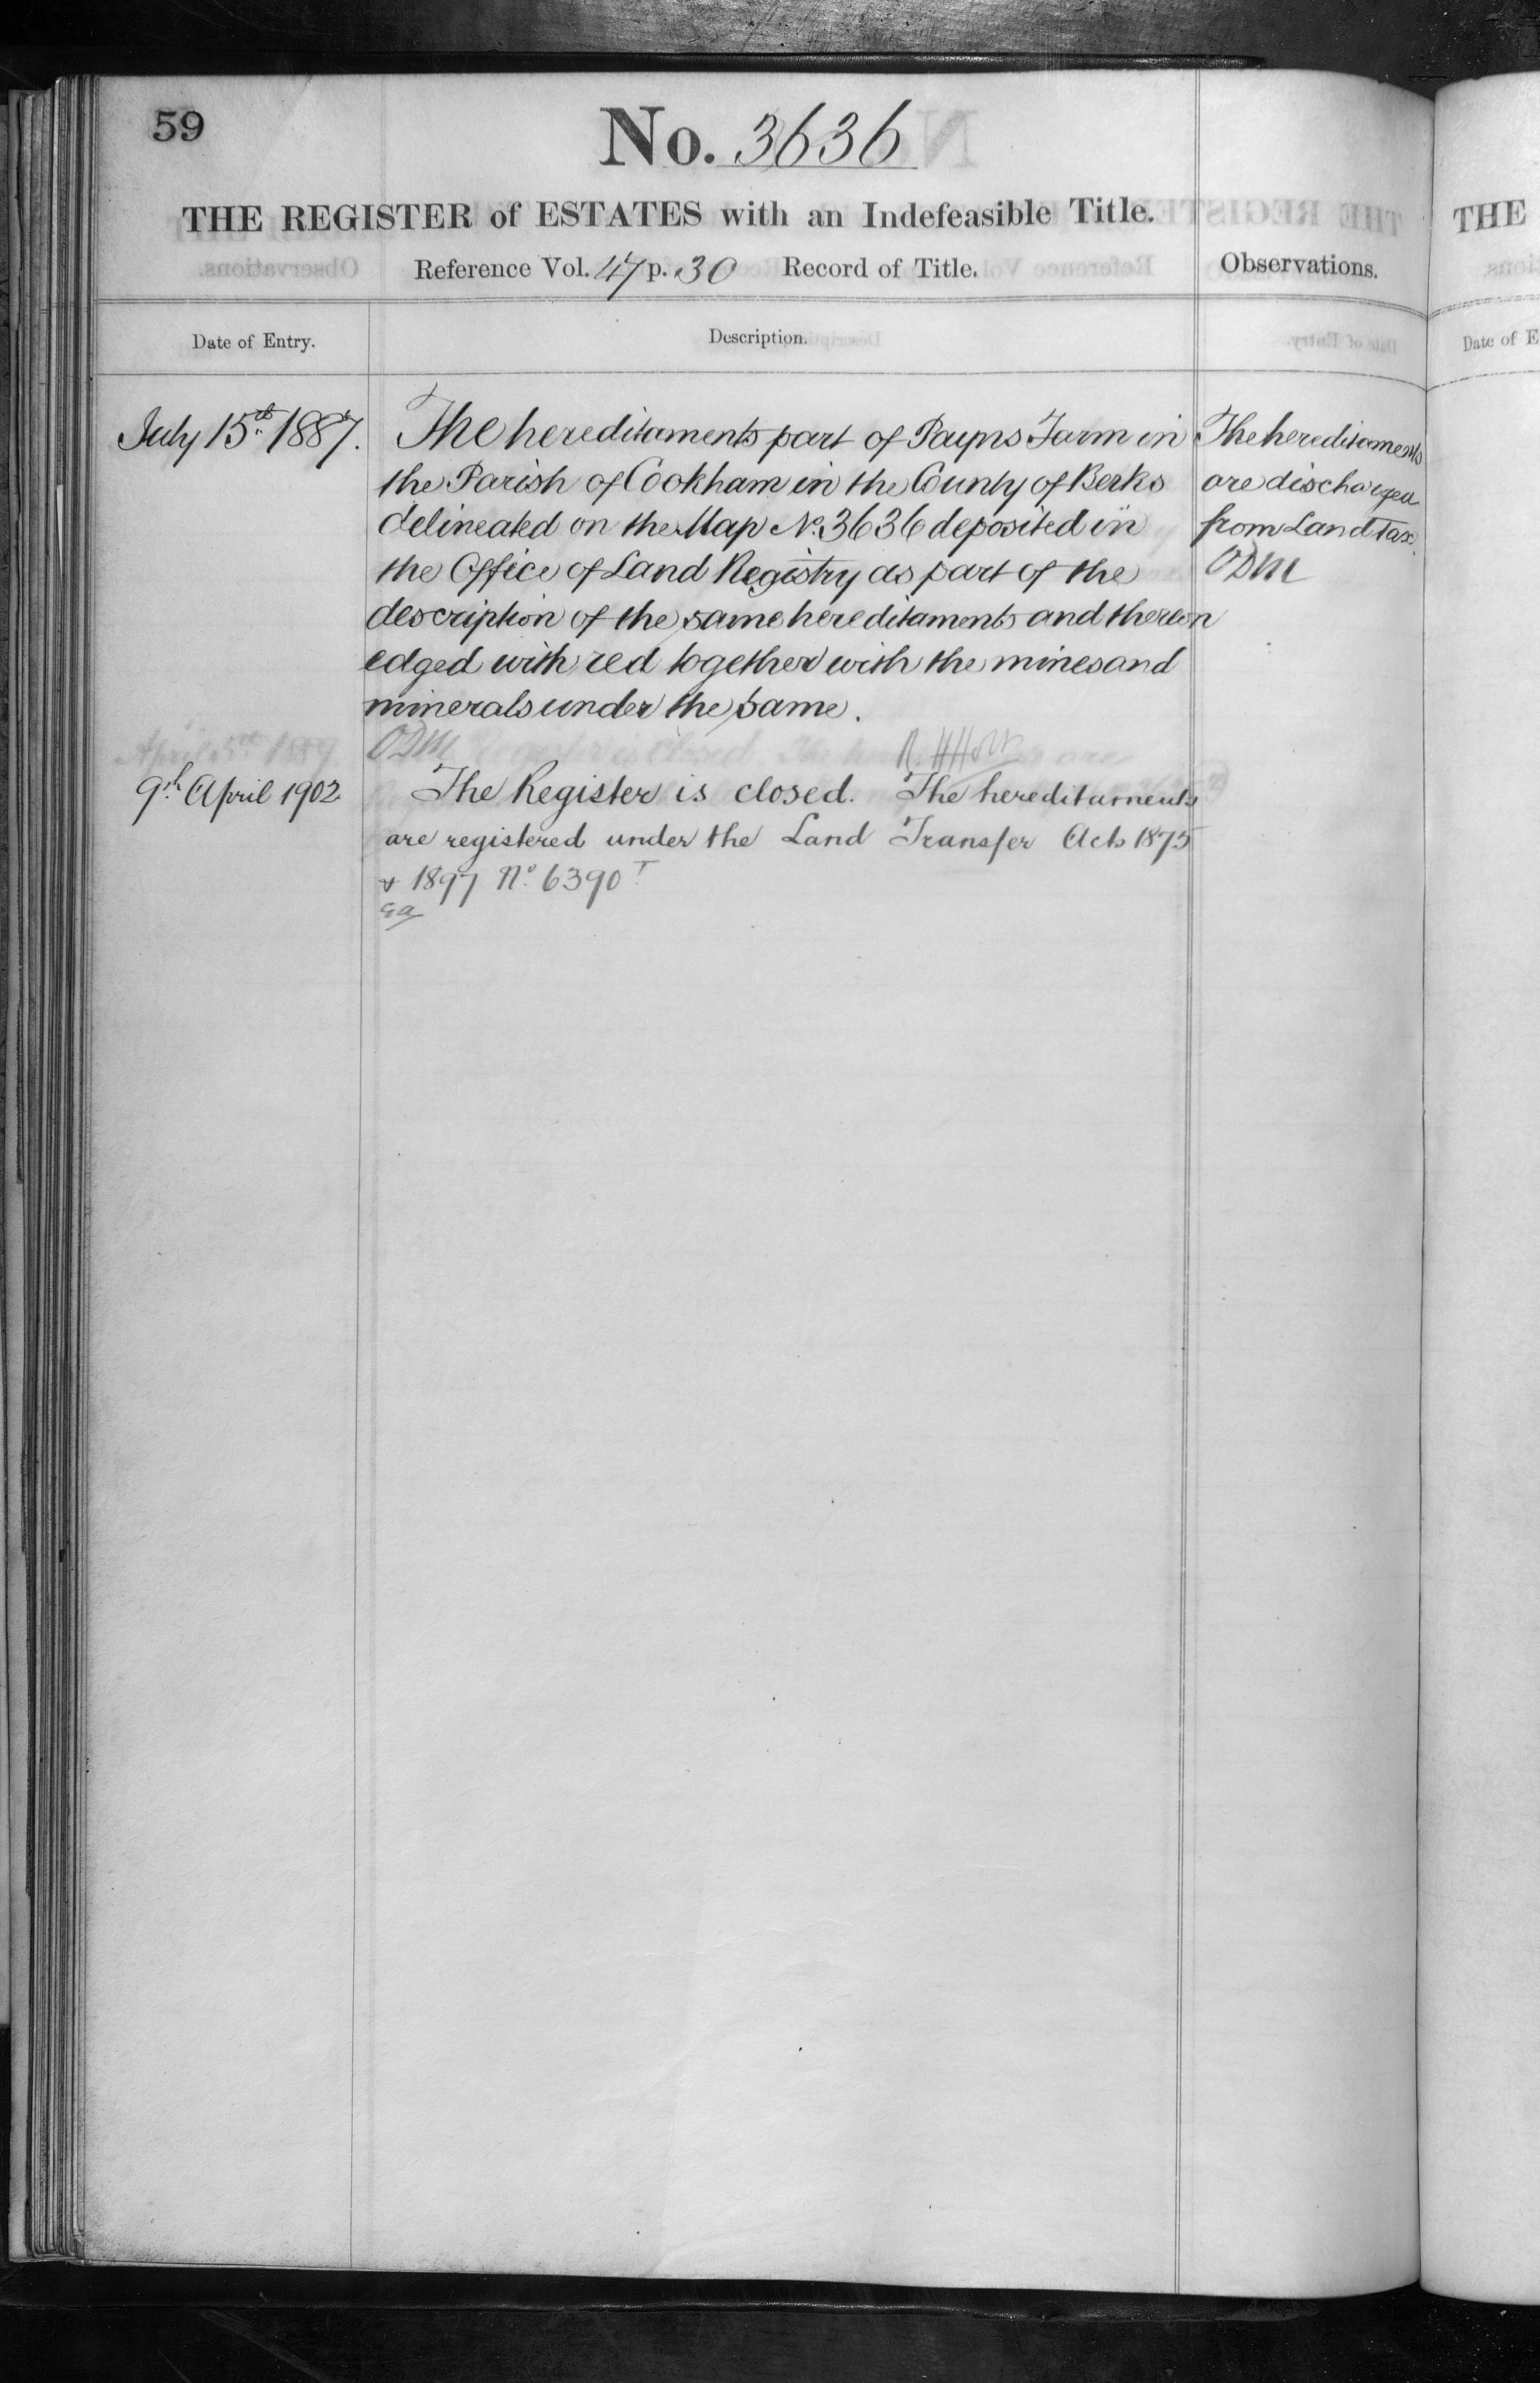 59
No. 3636
THE REGISTER of ESTATES with an Indefeasible Title.
Reference Vol. 47 p. 30 Record of Title.
Observations.
Date of Entry.
Description.
July 15th 1887.
The hereditaments part of Payns Farm in
the Parish of Cookham in the County of Berks
delineated on the Map No. 3636 deposited in
the Office of Land Registry as part of the
description of the same hereditaments and thereon
edged with red together with the mines and
minerals under the same.
ODM
R. H. Holt
The hereditaments
are discharged
from Land Tax.
ODM
April 5th 1889
9th April 1902
The Register is closed. The hereditaments
are registered under the Land Transfer Acts 1875
& 1897 No. 6390 T
THE
Date of E